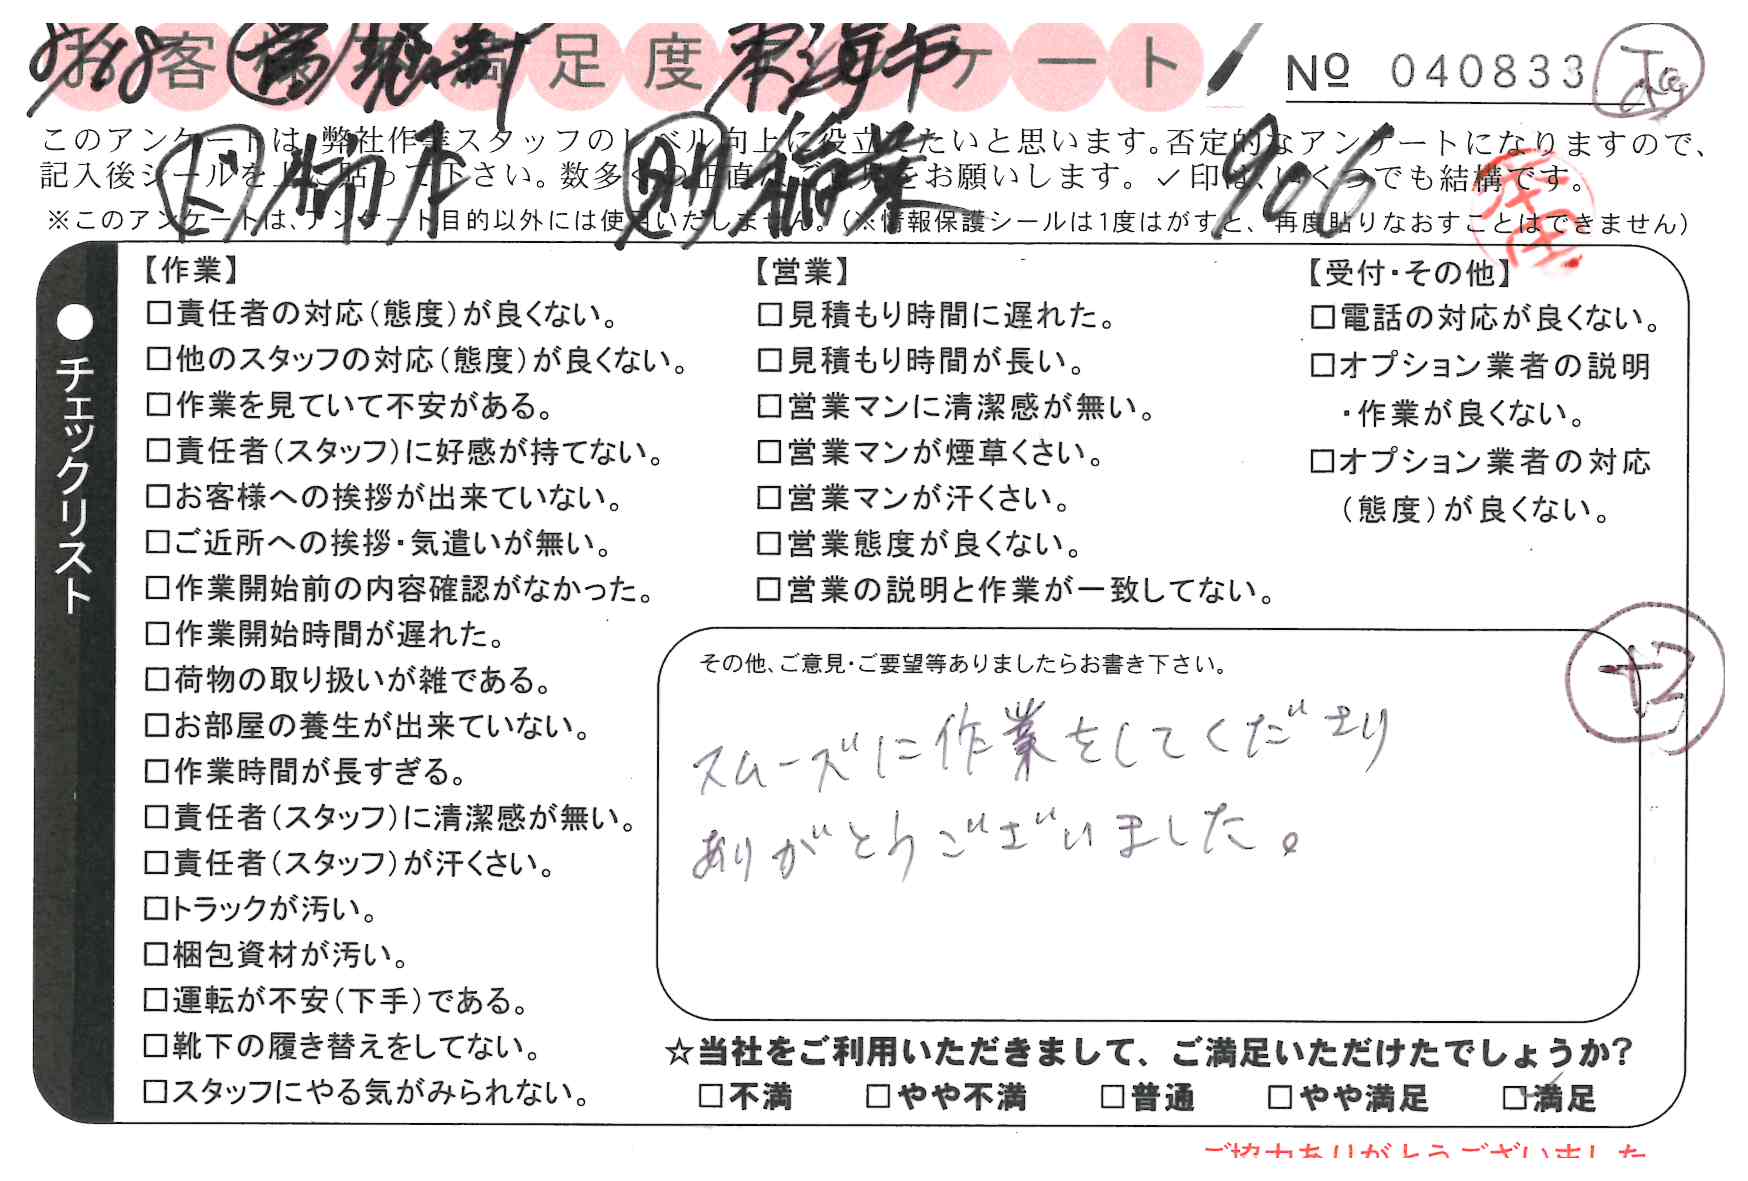 お客様 満足度アンケート
東海市
№ 040833
このアンケートは、弊社作業スタッフのレベル向上に役立てたいと思います。否定的なアンケートになりますので、
記入後シールを上に貼って下さい。数多くの正直なご意見をお願いします。✓印は、いくつでも結構です。
906
※このアンケートは、アンケート目的以外には使用いたしません。(※情報保護シールは1度はがすと、再度貼りなおすことはできません)
●チェックリスト
【作業】
□責任者の対応(態度)が良くない。
□他のスタッフの対応(態度)が良くない。
□作業を見ていて不安がある。
□責任者(スタッフ)に好感が持てない。
□お客様への挨拶が出来ていない。
□ご近所への挨拶・気遣いが無い。
□作業開始前の内容確認がなかった。
□作業開始時間が遅れた。
□荷物の取り扱いが雑である。
□お部屋の養生が出来ていない。
□作業時間が長すぎる。
□責任者(スタッフ)に清潔感が無い。
□責任者(スタッフ)が汗くさい。
□トラックが汚い。
□梱包資材が汚い。
□運転が不安(下手)である。
□靴下の履き替えをしてない。
□スタッフにやる気がみられない。
【営業】
□見積もり時間に遅れた。
□見積もり時間が長い。
□営業マンに清潔感が無い。
□営業マンが煙草くさい。
□営業マンが汗くさい。
□営業態度が良くない。
□営業の説明と作業が一致してない。
【受付・その他】
□電話の対応が良くない。
□オプション業者の説明
・作業が良くない。
□オプション業者の対応
(態度)が良くない。
その他、ご意見・ご要望等ありましたらお書き下さい。
スムーズに作業をしてくださり
ありがとうございました。
+3
☆当社をご利用いただきまして、ご満足いただけたでしょうか?
□不満 □やや不満 □普通 □やや満足 ☑満足
ご協力ありがとうございました